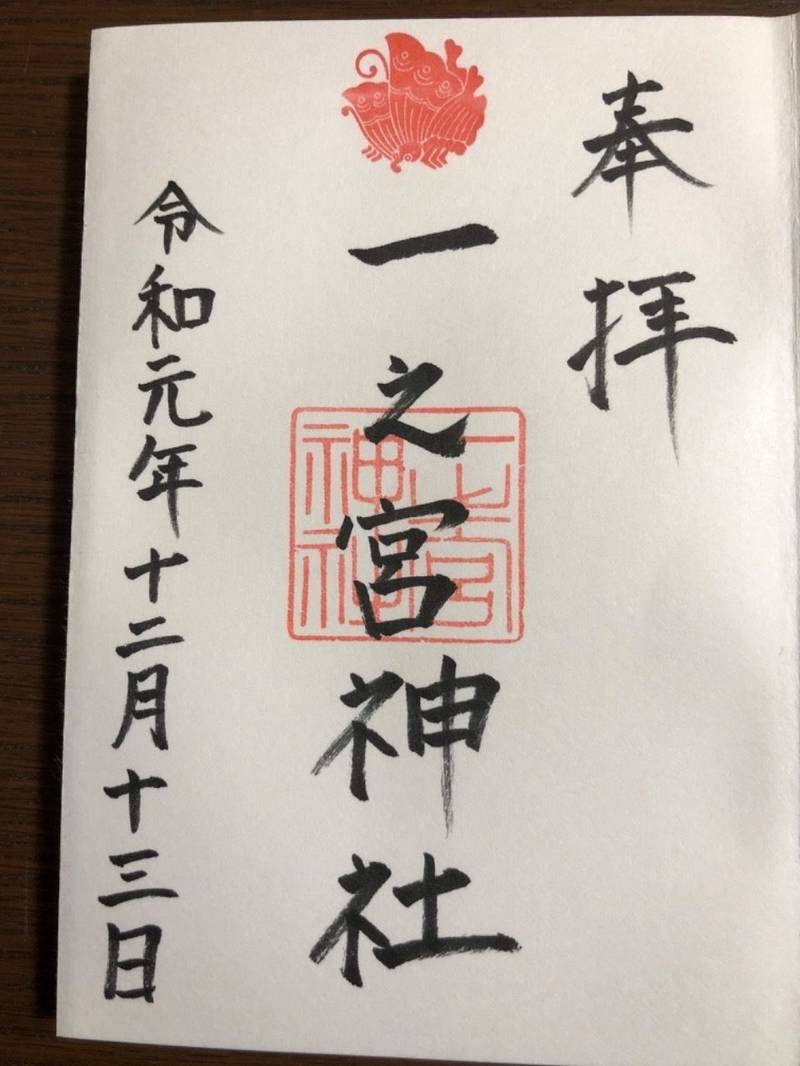 奉拝
一之宮神社
一之宮神社
令和元年十二月十三日